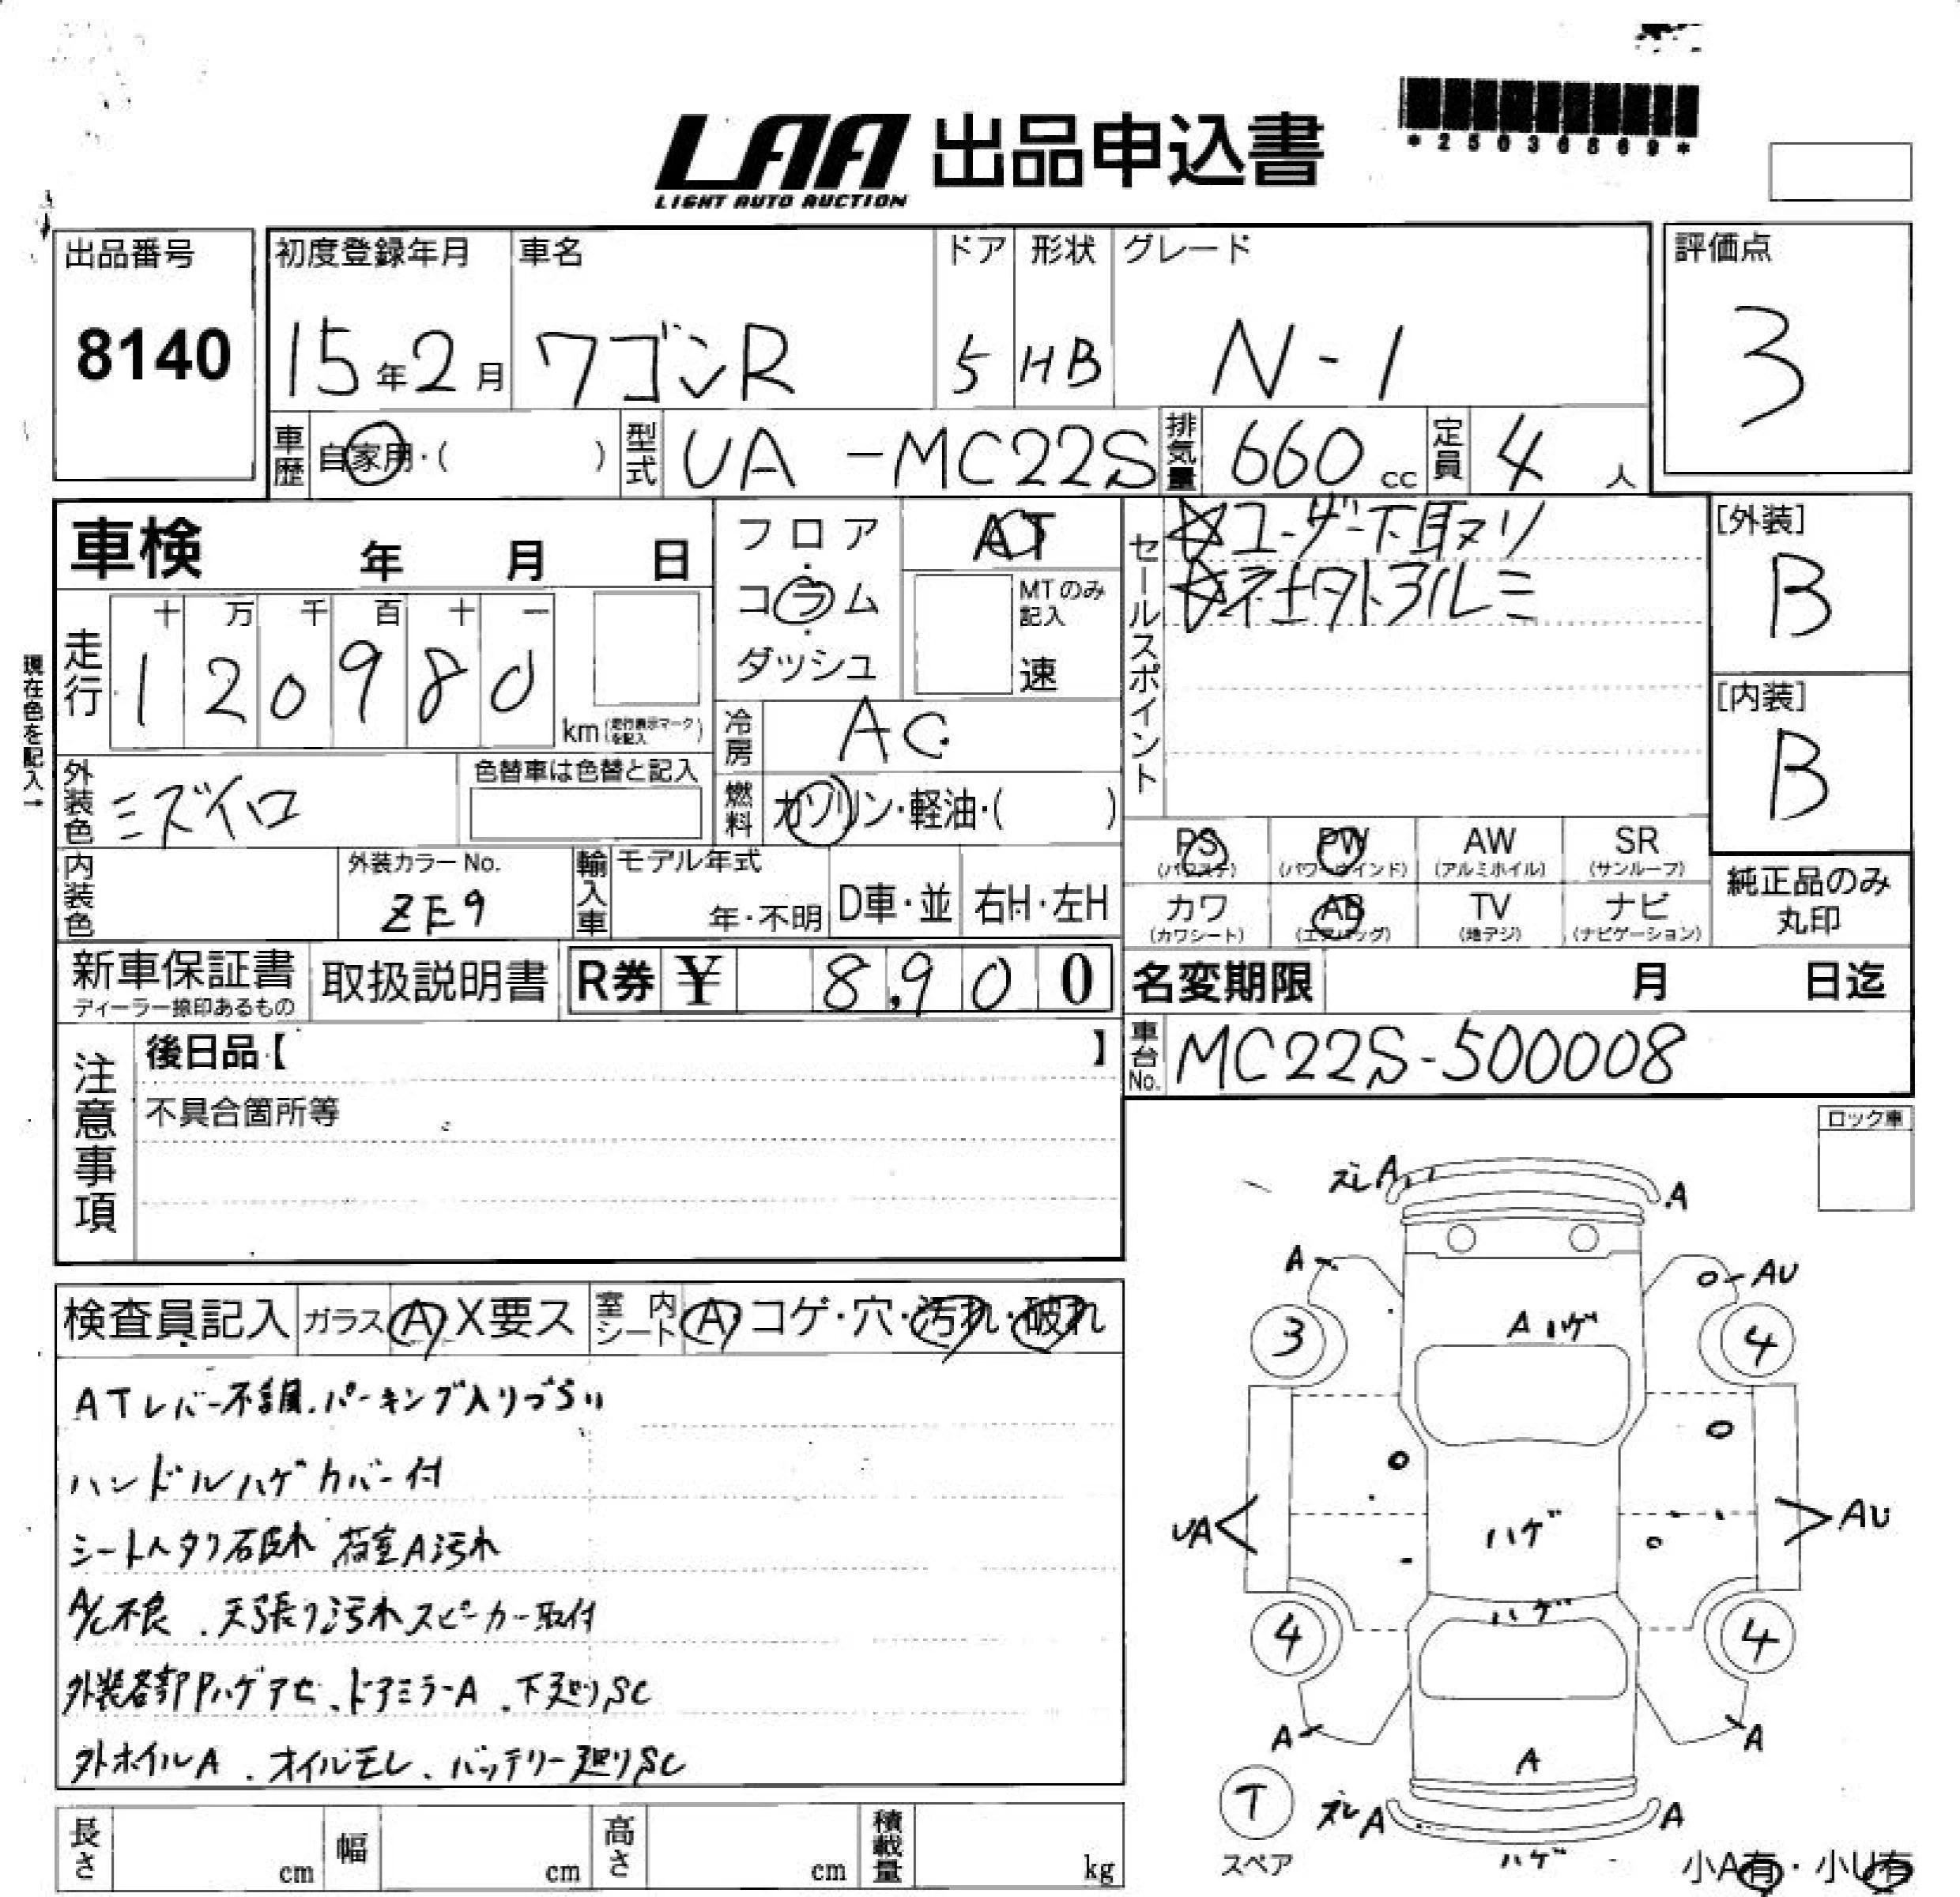 *25036869*
LAA 出品申込書
LIGHT AUTO AUCTION
出品番号
8140
初度登録年月
15年2月
車名
ワゴンR
ドア
5
形状
HB
グレード
N-1
評価点
3
車歴 自家用・( )
型式 UA-MC22S
排気量 660cc
定員 4人
車検 年 月 日
フロア・コラム・ダッシュ
AT
MTのみ記入
速
セールスポイント
☆ユーザー下取マリ
☆社外アルミ
[外装]
B
[内装]
B
純正品のみ
丸印
現在色を記入→
走行
十 万 千 百 十 一
1 2 0 9 8 0
km(走行表示マークを記入)
冷房 AC
外装色 ミズイロ
色替車は色替と記入
燃料 ガソリン・軽油・( )
PS
PW
AW
SR
(パワステ)
(パワーウインド)
(アルミホイル)
(サンルーフ)
カワ
AB
TV
ナビ
(カワシート)
(エアバッグ)
(地デジ)
(ナビゲーション)
内装色
外装カラーNo.
ZE9
輸入車
モデル年式
年・不明
D車・並
右H・左H
新車保証書
ディーラー捺印あるもの
取扱説明書
R券 ¥ 8,900
名変期限 月 日迄
車台No. MC22S-500008
注意事項
後日品【 】
不具合箇所等
ロック車
検査員記入
ガラス A X要ス
室内シート A・コゲ・穴・汚れ・破れ
ATレバー不調.パーキング入りづらい
ハンドルハゲカバー付
シートヘタリ破れ 荷室A汚れ
A/C不良.天張り汚れスピーカー取付
外装各部Pハゲアセ、ドアミラーA.下廻りSC
外ホイルA.オイルモレ、バッテリー廻りSC
ズレA
A
A
AU
3
Aハゲ
4
UA
ハゲ
AU
ハゲ
4
4
A
A
A
T
スペア
ズレA
A
ハゲ
小A有・小U有
長さ cm
幅 cm
高さ cm
積載量 kg